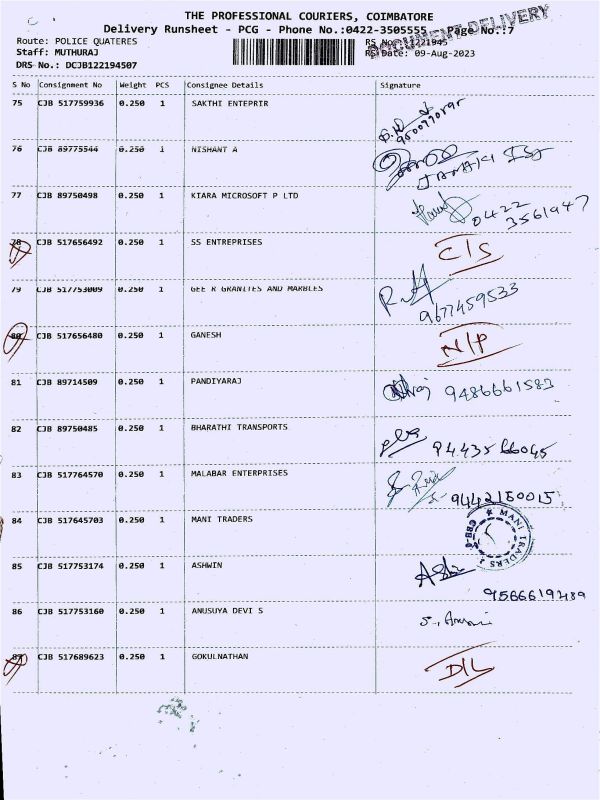 THE PROFESSIONAL COURIERS, COIMBATORE
Delivery Runsheet - PCG - Phone No.:0422-3505555 Page No.:7
DOCUMENT DELIVERY
Route: POLICE QUATERES
Staff: MUTHURAJ RS Date: 09-Aug-2023
DRS No.: DCJB122194507
S No Consignment No Weight PCS Consignee Details Signature
75 CJB 517759936 0.250 1 SAKTHI ENTEPRIR
76 CJB 89775544 0.250 1 NISHANT A
77 CJB 89750498 0.250 1 KIARA MICROSOFT P LTD 0422
3561947
78 CJB 517656492 0.250 1 SS ENTREPRISES C/S
79 CJB 517753009 0.250 1 GEE R GRANITES AND MARBLES
9677459533
80 CJB 517656480 0.250 1 GANESH N/P
81 CJB 89714509 0.250 1 PANDIYARAJ 9486661583
82 CJB 89750485 0.250 1 BHARATHI TRANSPORTS
94435 66045
83 CJB 517764570 0.250 1 MALABAR ENTERPRISES
9442150015
84 CJB 517645703 0.250 1 MANI TRADERS MANI TRADERS
85 CJB 517753174 0.250 1 ASHWIN
86 CJB 517753160 0.250 1 ANUSUYA DEVI S
87 CJB 517689623 0.250 1 GOKULNATHAN D/L